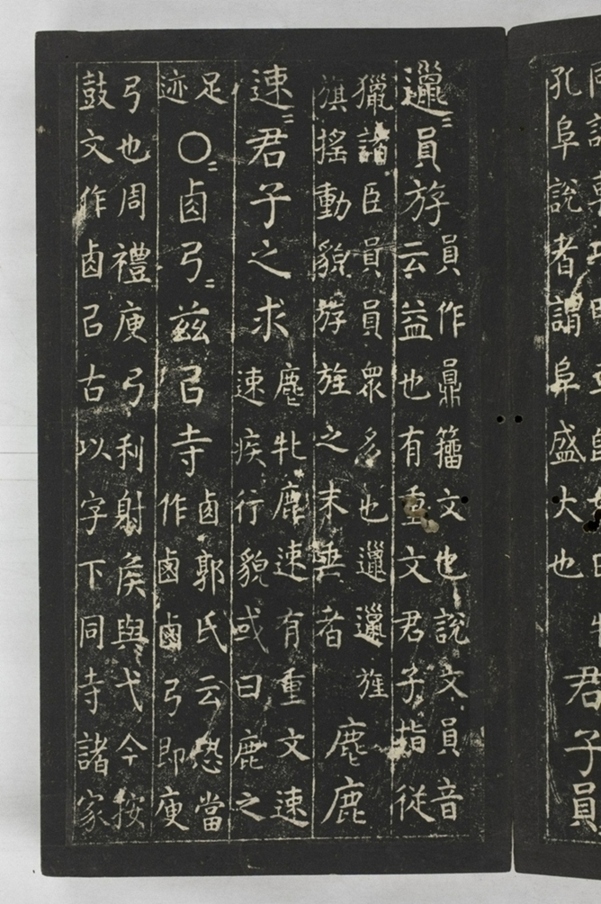 孔阜說者謂阜盛大也
君子員
邋=員斿
員作鼎籀文也說文員音
云益也有重文君子指從
獵諸臣員員眾多也邋邋旌
旗搖動貌斿旌之末與者
麀鹿
速=君子之求
麀牝鹿速有重文速
速疾行貌或曰鹿之
足
迹
〇=卤弓=茲㠯寺
卤郭氏云恐當
作鹵鹵弓即庾
弓也周禮庾弓利射侯與弋今按
鼓文作卤㠯古以字下同寺諸家